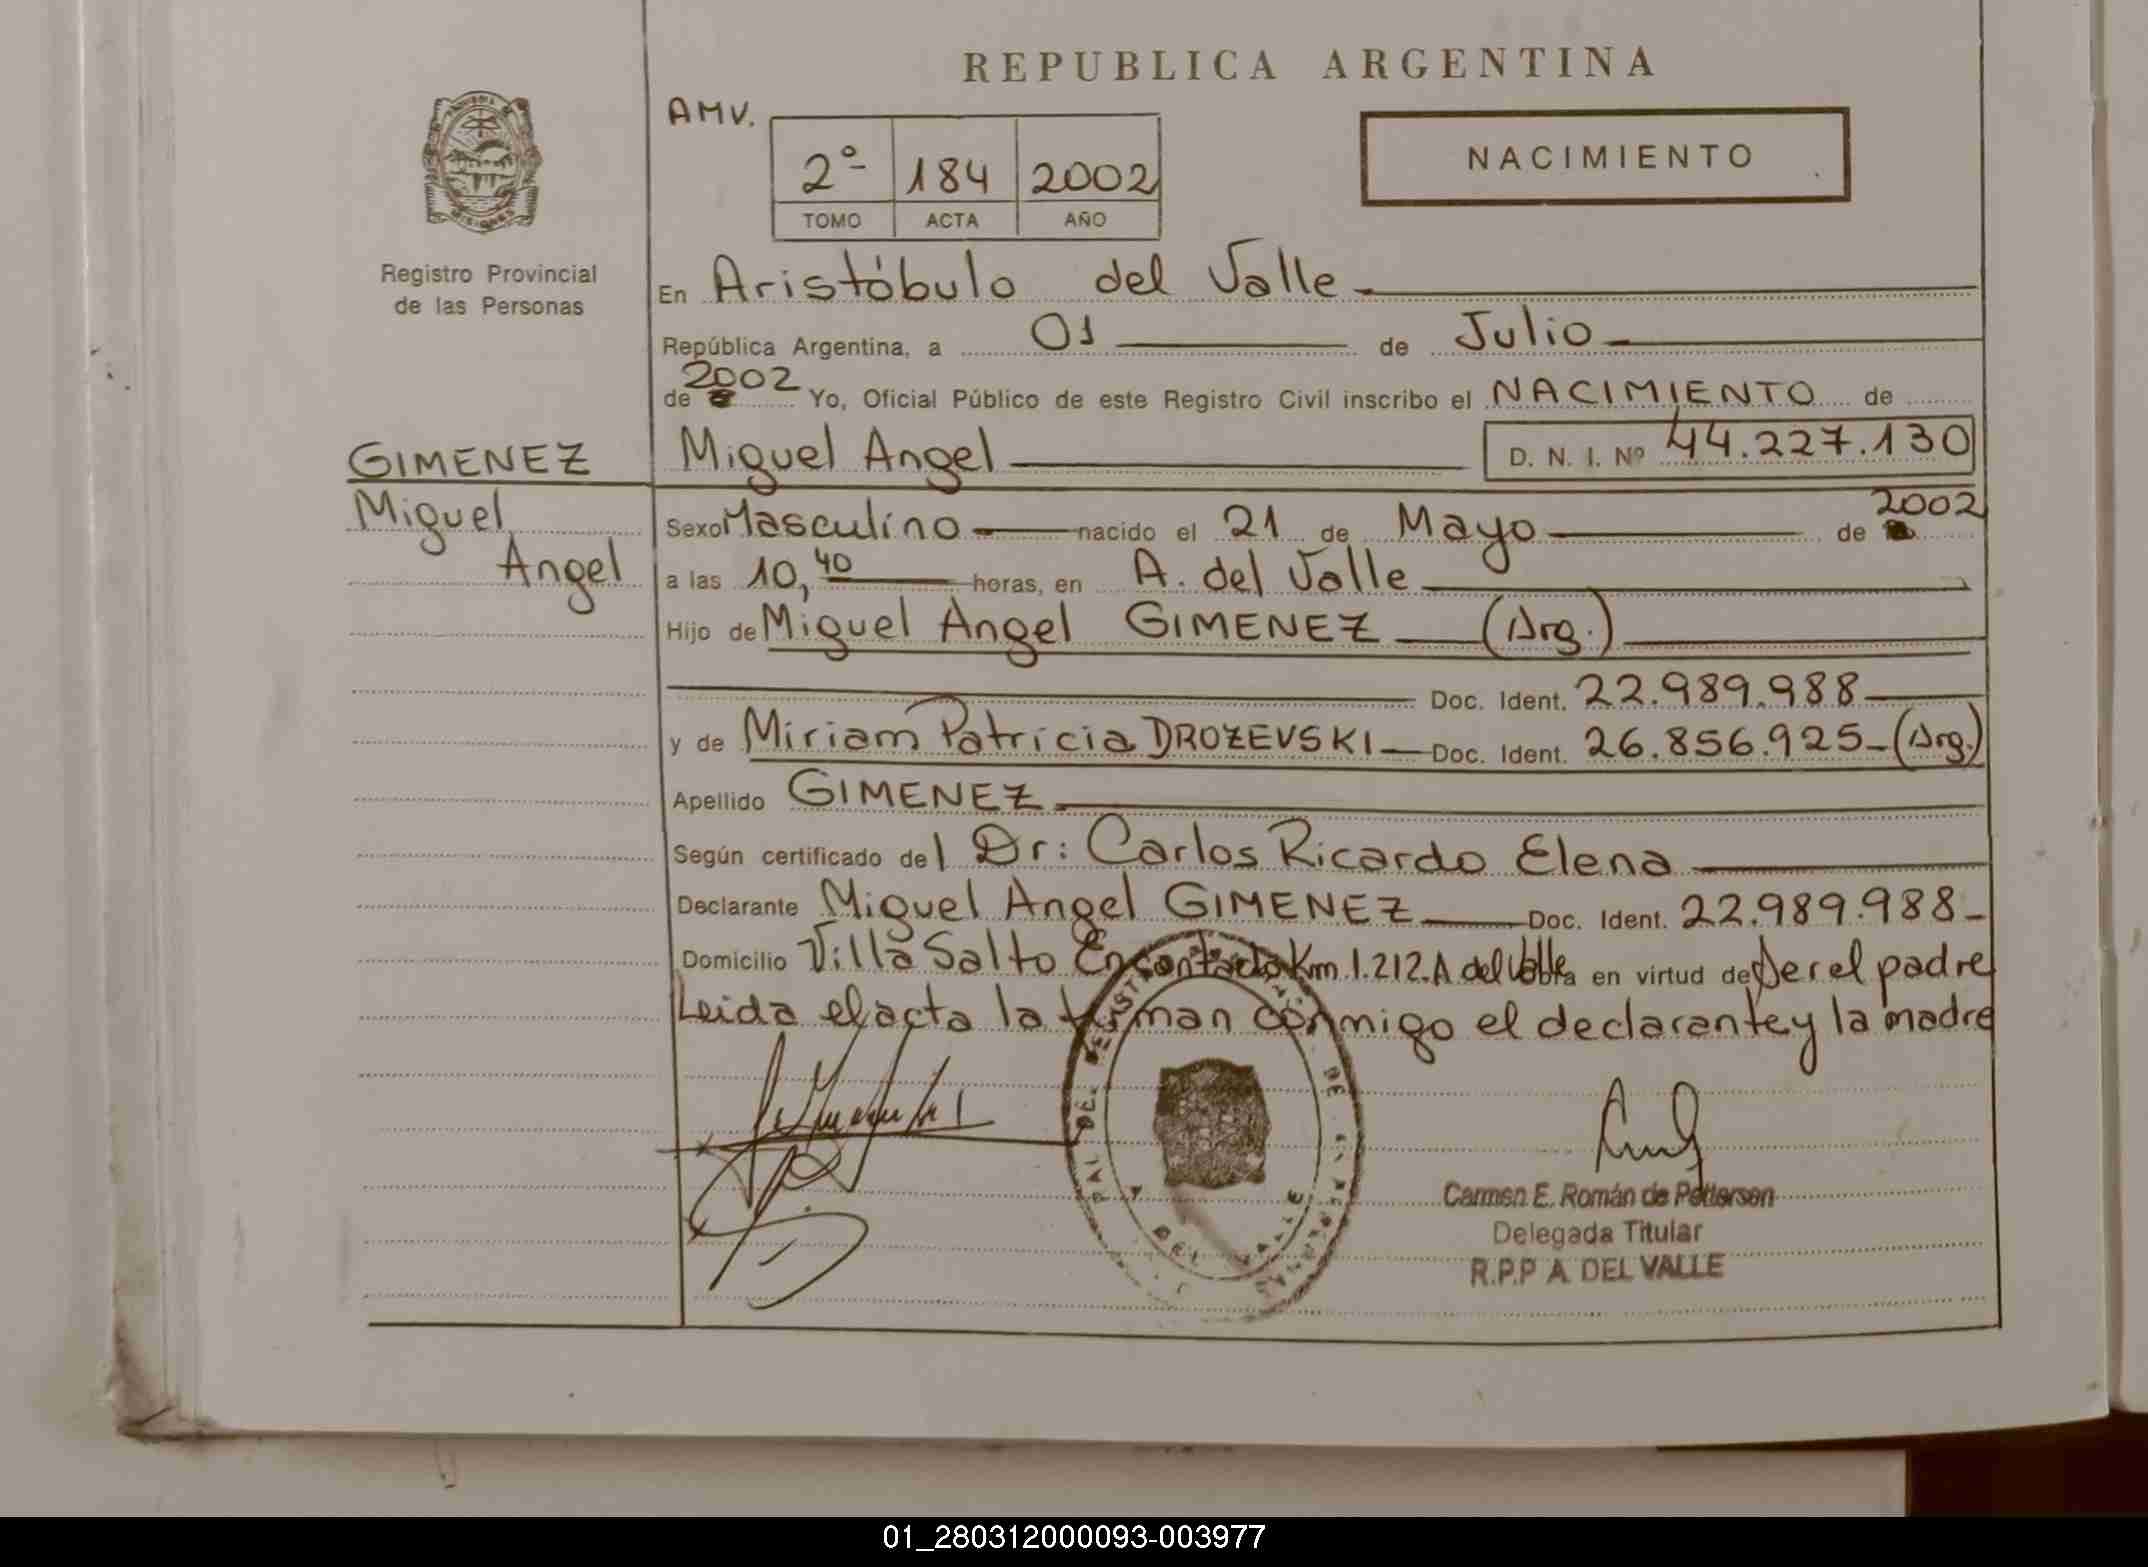 REPUBLICA ARGENTINA
AMV.
2º 184 2002
TOMO ACTA AÑO
NACIMIENTO
MISIONES
Registro Provincial
de las Personas
En Aristóbulo del Valle
República Argentina, a 01 de Julio
de 2002 Yo, Oficial Público de este Registro Civil inscribo el NACIMIENTO de
GIMENEZ
Miguel
Angel
Miguel Angel D. N. I. Nº 44.227.130
Sexo Masculino nacido el 21 de Mayo de 2002
a las 10,40 horas, en A. del Valle
Hijo de Miguel Angel GIMENEZ (Arg.)
Doc. Ident. 22.989.988
y de Miriam Patricia DROZEVSKI Doc. Ident. 26.856.925 (Arg.)
Apellido GIMENEZ
Según certificado del Dr: Carlos Ricardo Elena
Declarante Miguel Angel GIMENEZ Doc. Ident. 22.989.988
Domicilio Villa Salto Encantado Km 1.212. A del Valle obra en virtud de Ser el padre
Leida el acta la firman conmigo el declarante y la madre
DEL VALLE
Carmen E. Román de Pettersen
Delegada Titular
R.P.P A. DEL VALLE
01_280312000093-003977